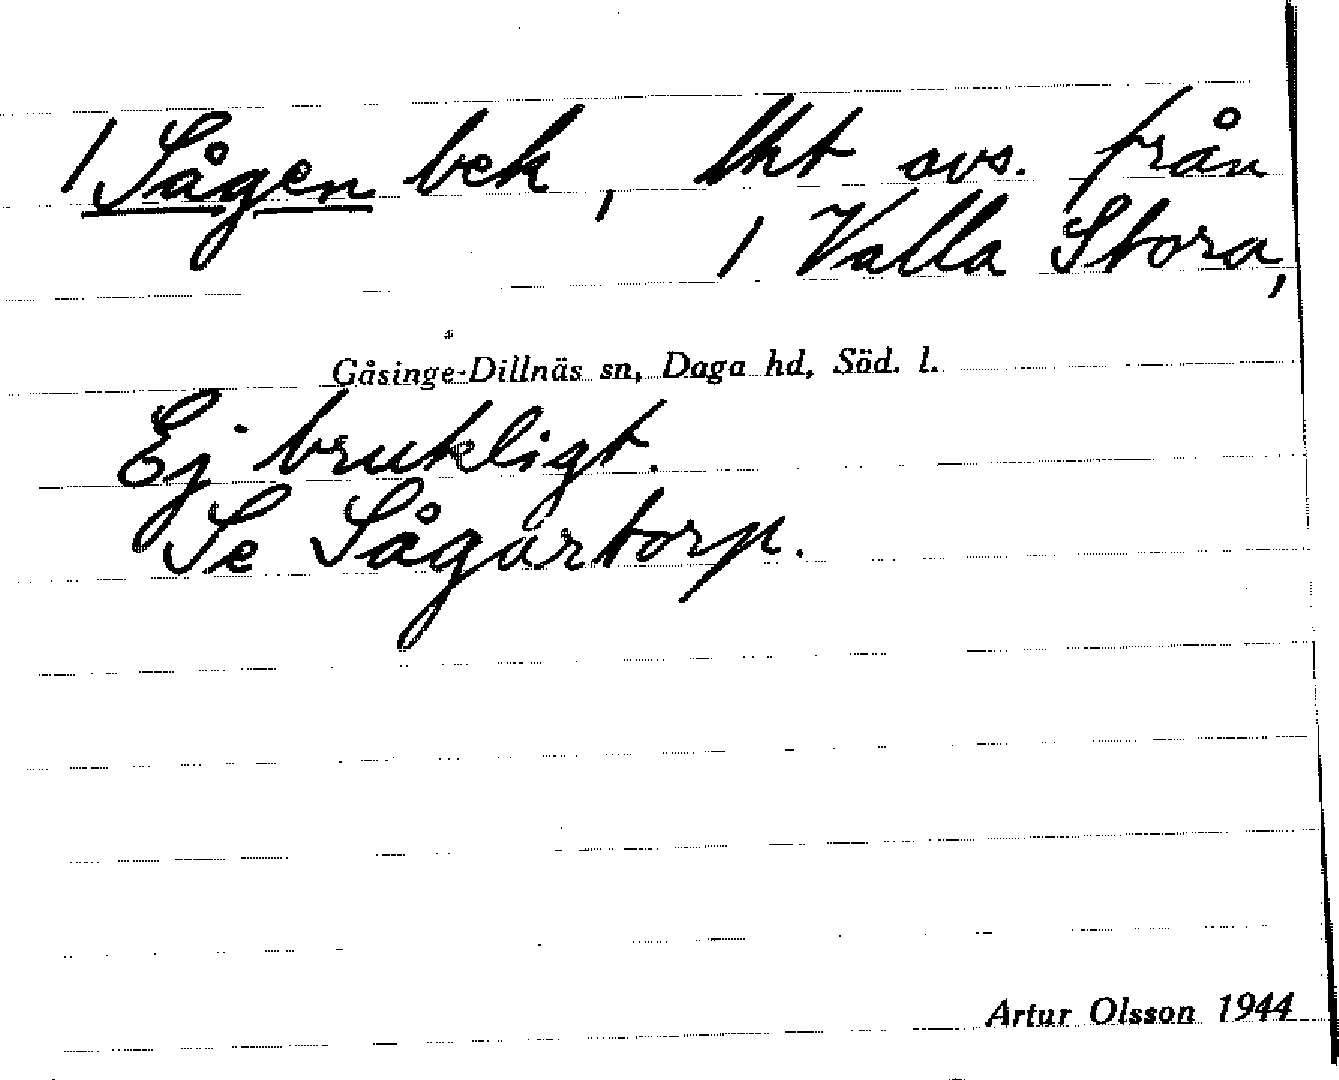 / Sågen bek, lht avs. från
/ Valla Stora,
Gåsinge-Dillnäs sn, Daga hd, Söd. l.
Ej brukligt.
Se Sågartorp.
Artur Olsson 1944